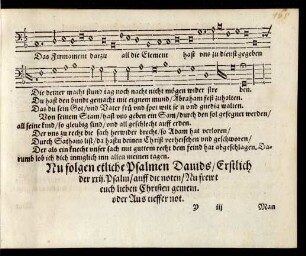 Das Firmament darzu all die Element hast uns zu dienst gegeben
Die deiner macht stund tag noch nacht nicht mögen wider stre ben.
Du hast den bundt gemacht mit eignem mund / Abraham fest zuhalten.
Das du sein Got / und Vater sey / und spot wilt seiñ und gnedig walten.
Von seinem Stam / hast uns geben ein Sam / durch den sol gesegnet werden /
all seine kind / so gleubig sind / und all geschlecht auff erden.
Der uns zu recht die sach herwider brecht / so Adam hat verloren /
Durch Sathans list / da hastu deinen Christ verheischen und geschworen /
Der als ein frucht unser sach mit guttem recht dem feind hat abgeschlagen, Da-
rumb lob ich dich inniglich inn allen meinen tagen.
Nu folgen etliche Psalmen Davids / Erstlich
der xiij. Psalm / auff die noten / Nu frewt
euch lieben Christen gemein.
oder Aus tieffer not.
P iij Man